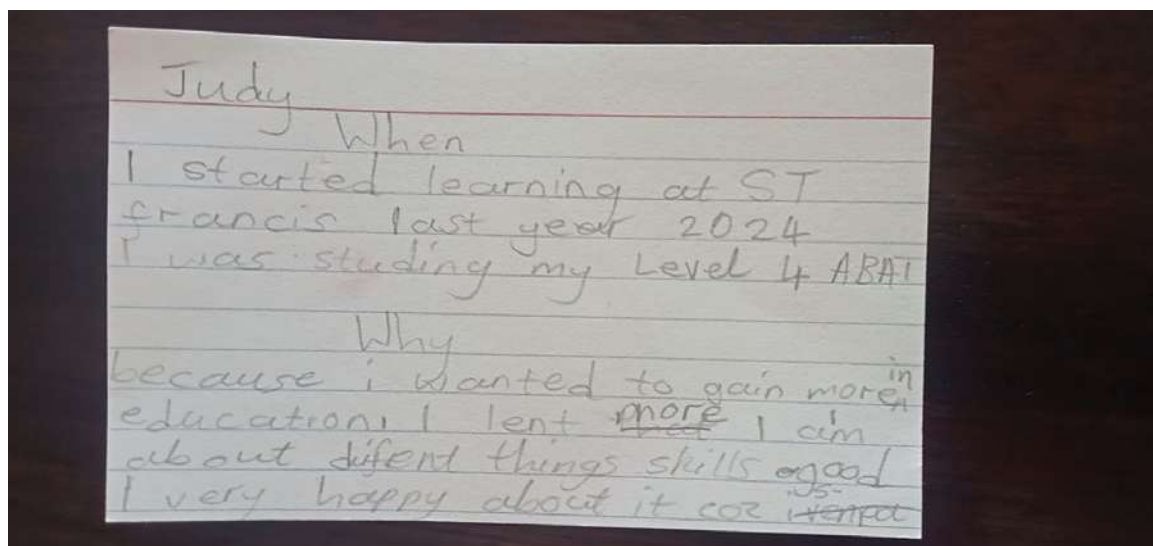 Judy
When
I started learning at ST
francis last year 2024
I was studing my Level 4 ABAT
Why
because i wanted to gain more in
education, I lent more I am
about difent things skills good
I very happy about it coz is